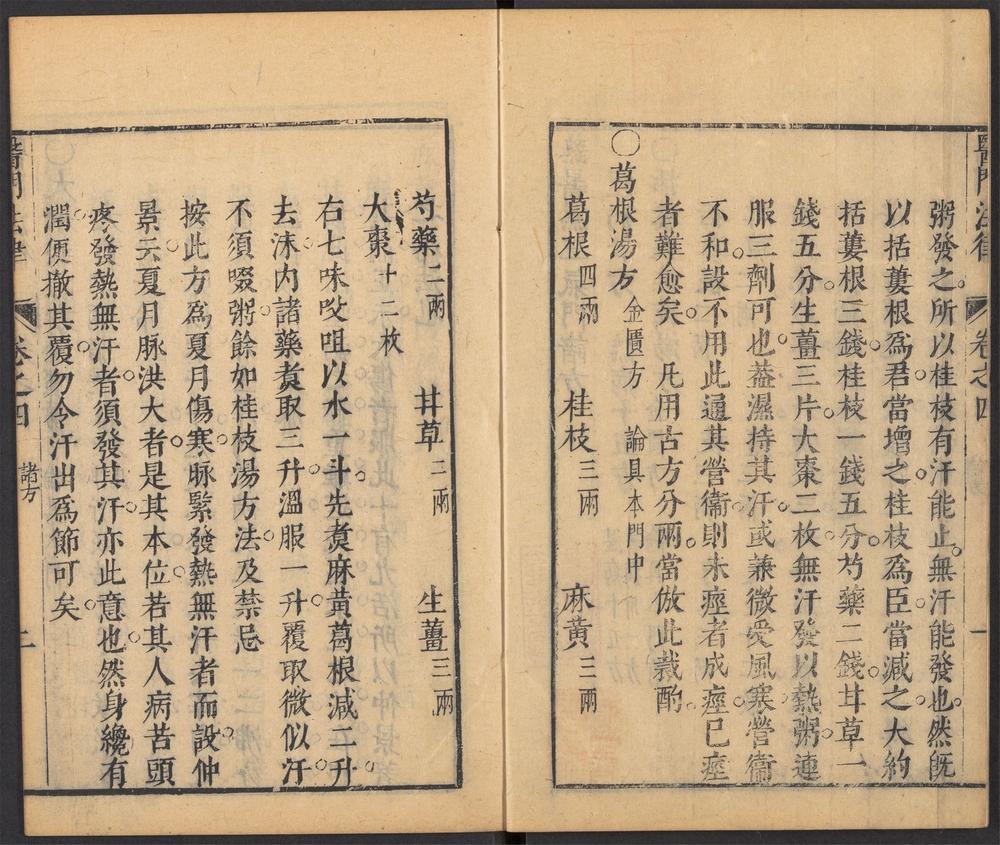 醫門法律 卷之四 一
粥發之所以桂枝有汗能止無汗能發也然既
以括蔞根爲君當增之桂枝爲臣當減之大約
括蔞根三錢桂枝一錢五分芍藥二錢甘草一
錢五分生薑三片大棗二枚無汗發以熱粥連
服三劑可也葢濕持其汗或兼微受風寒營衞
不和設不用此通其營衞則未痙者成痙已痙
者難愈矣凡用古方分兩當倣此裁酌
〇葛根湯方 金匱方 論具本門中
葛根四兩 桂枝三兩 麻黃三兩
芍藥二兩 甘草二兩 生薑三兩
大棗十二枚
右七味㕮咀以水一斗先煑麻黃葛根減二升
去沫內諸藥煑取三升溫服一升覆取微似汗
不須啜粥餘如桂枝湯方法及禁忌
按此方爲夏月傷寒脉緊發熱無汗者而設仲
景云夏月脉洪大者是其本位若其人病苦頭
疼發熱無汗者須發其汗亦此意也然身纔有
潤便撤其覆勿令汗出爲節可矣
醫門法律 卷之四 諸方 二